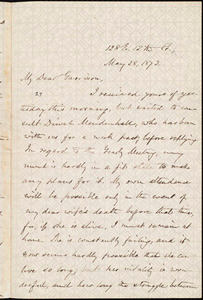 128 E. 12th St.,
May 28, 1872.
My Dear Garrison,
I received yours of yes-
terday this morning, but waited to con-
sult Dinah Mendenhall, who has been
with us for a week past, before replying.
In regard to the Yearly Meeting, my
mind is hardly in a fit state to make
any plans for it. My own attendance
will be possible only in the event of
my dear wife's death before that time,
for, if she is alive, I must remain at
home. She is constantly failing, and it
now seems hardly possible that she can
live so long; but her vitality is won-
derful, and how long the struggle between